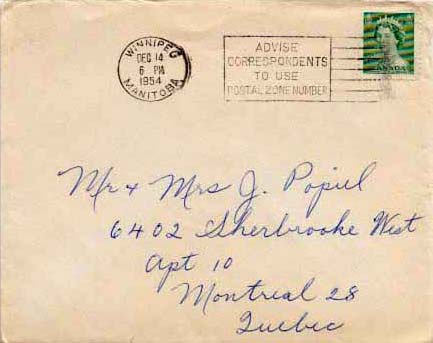 WINNIPEG
DEC 14
6 PM
1954
MANITOBA
ADVISE
CORRESPONDENTS
TO USE
POSTAL ZONE NUMBER
CANADA
Mr & Mrs J. Popiel
6402 Sherbrooke West
Apt 10
Montreal 28
Quebec